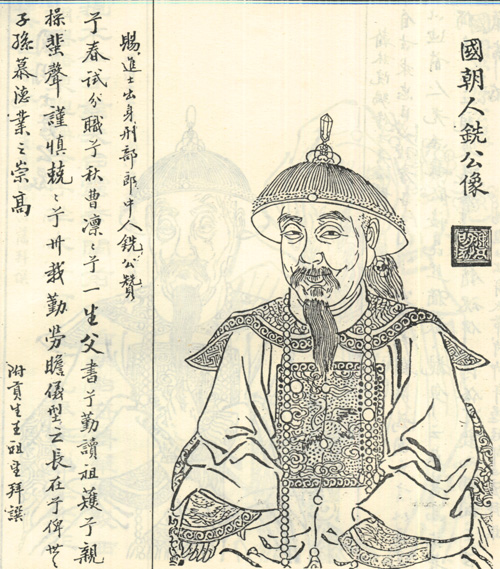 國朝人銑公像
賜進士出身刑部郎中人銑公贊
于春試分職于秋曹凜〻于一生父書于勤讀祖于親
操蜚聲謹慎兢〻于卅載勤勞瞻儀型之長在于俾世〻
子孫慕德業之崇高
附貢生王祖拜譔